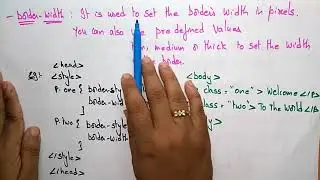 - border-width : It is used to set the border's width in pixels.
You can also use predefined values
thin, medium or thick to set the width
border.
Eg:- <head>
<style>
P.one { border-style
border-width
}
P.two { border-style
border-width
}
</style>
</head>
<body>
class = "one" > Welcome </P>
class = "two" > To the World </P>